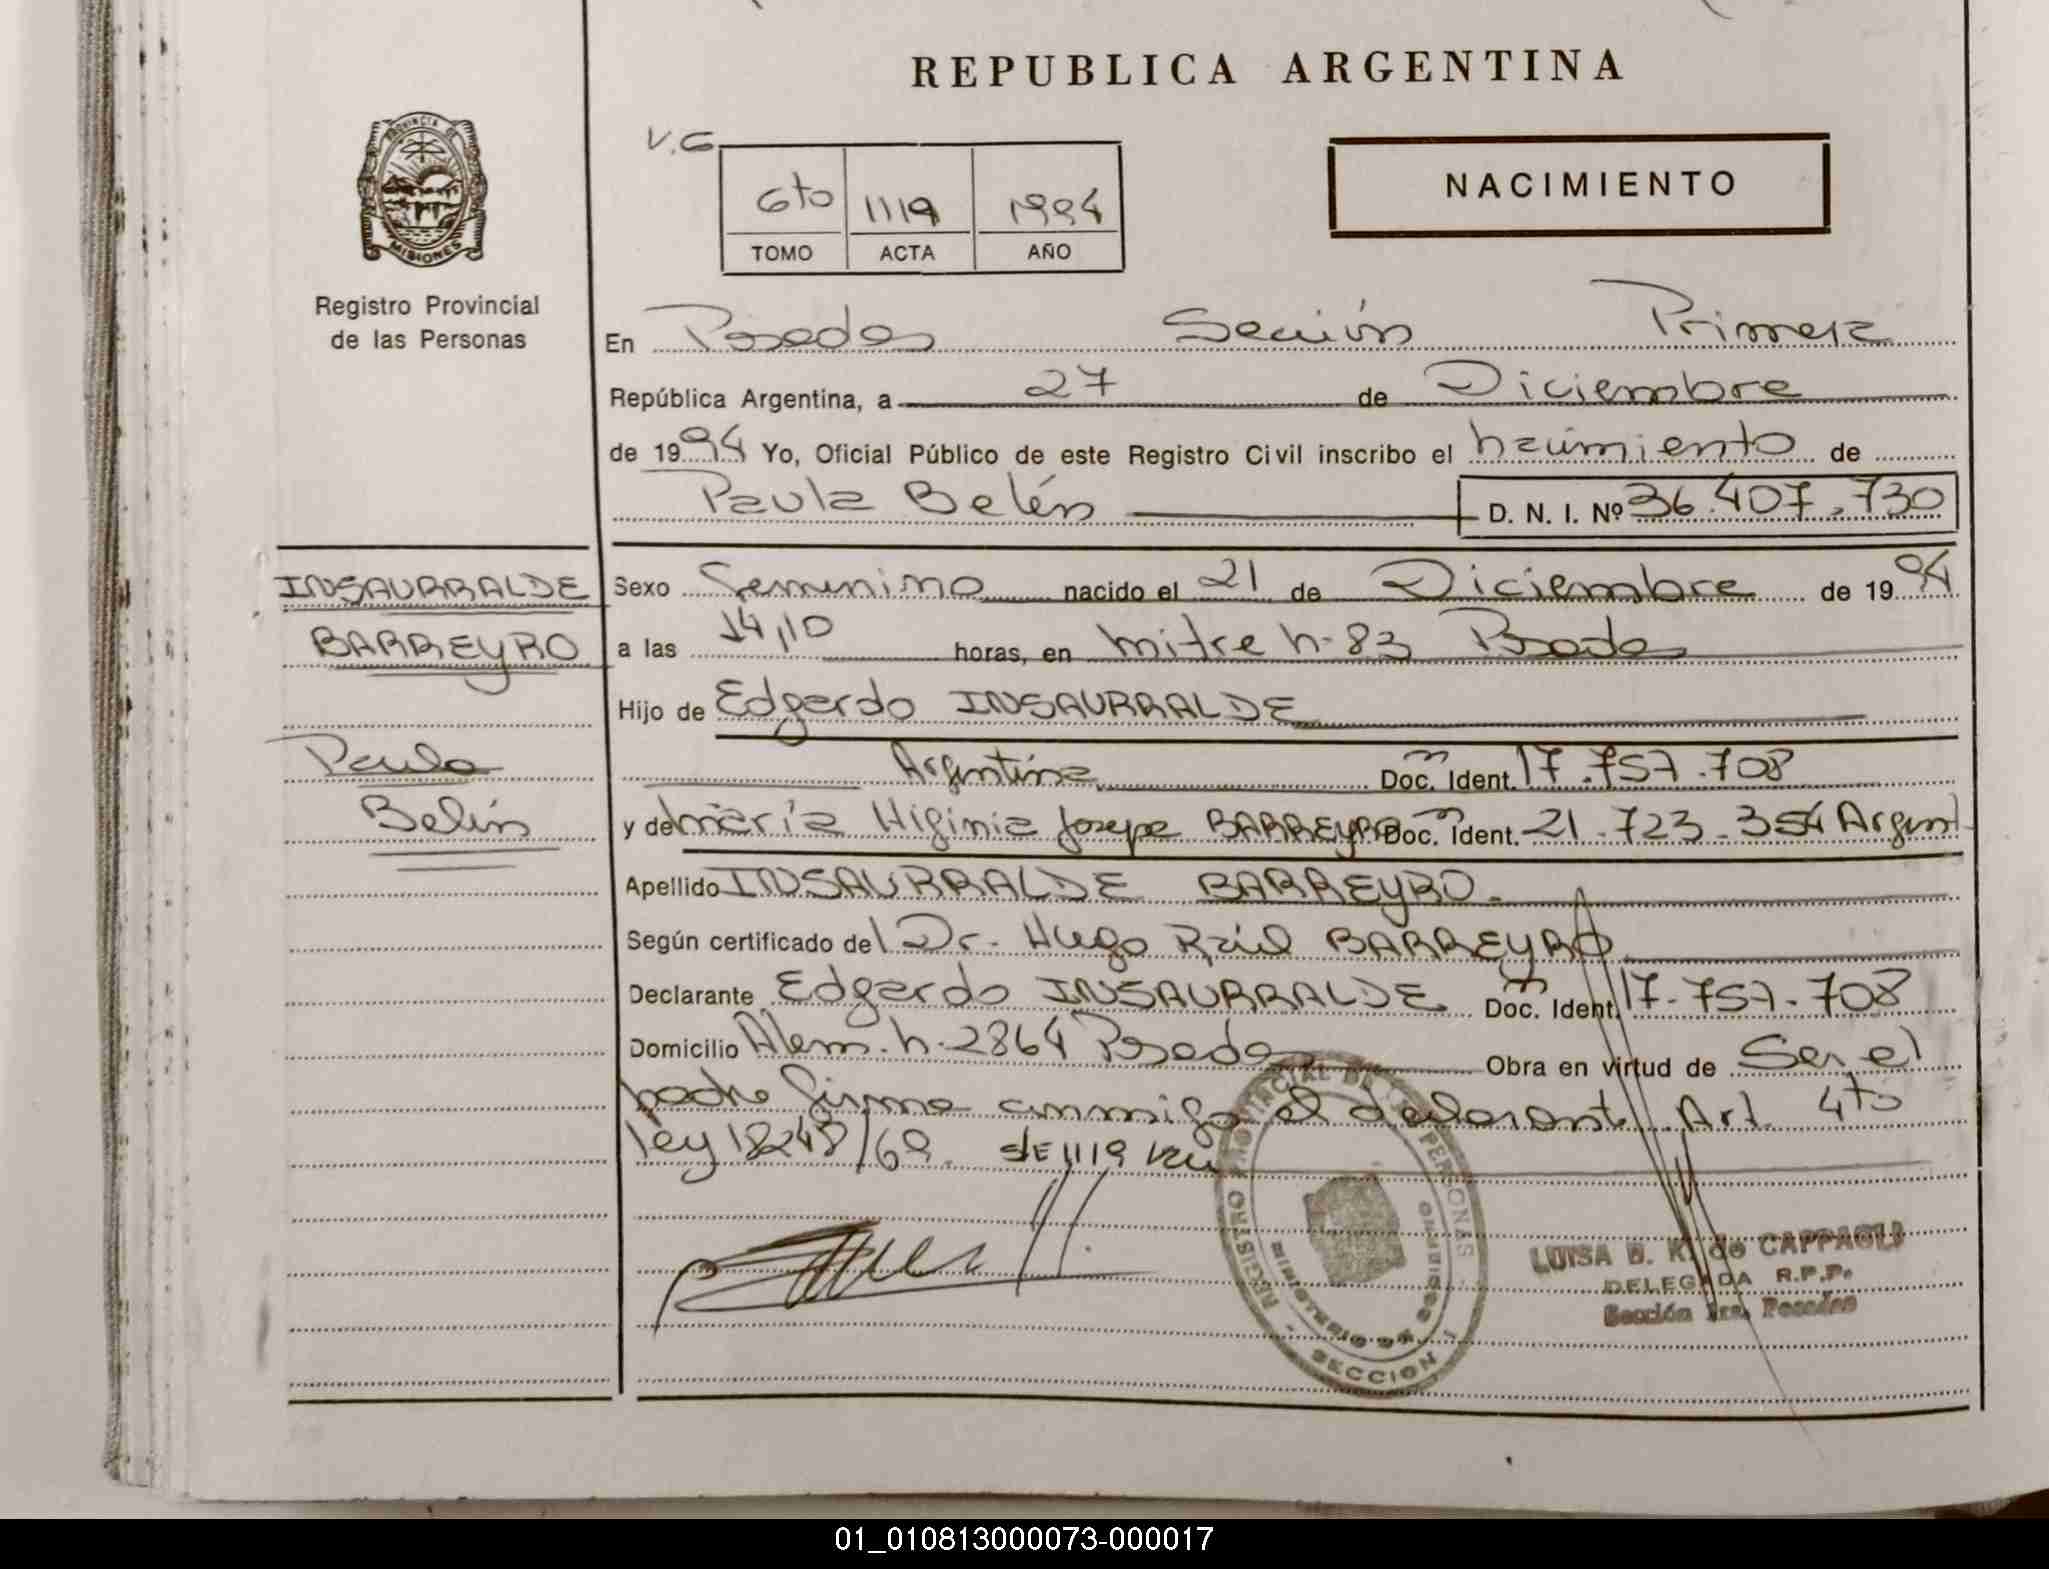 REPUBLICA ARGENTINA
PROVINCIA DE
MISIONES
Registro Provincial
de las Personas
V.G
6to 1119 1994
TOMO ACTA AÑO
NACIMIENTO
En Posadas Sección Primera
República Argentina, a 27 de Diciembre
de 1994 Yo, Oficial Público de este Registro Civil inscribo el nacimiento de
Paula Belén D. N. I. Nº 36.407.730
INSAURRALDE
BARREYRO
Paula
Belén
Sexo femenino nacido el 21 de Diciembre de 1994
a las 14,10 horas, en mitre n-83 Posadas
Hijo de Edgardo INSAURRALDE
Argentina Doc. Ident. 17.757.708
y de maría Higinia Josepa BARREYRO Doc. Ident. 21.723.354 Argent
Apellido INSAURRALDE BARREYRO.
Según certificado del Dr. Hugo Raúl BARREYRO
Declarante Edgardo INSAURRALDE Doc. Ident. 17.757.708
Domicilio Alem. n. 2864 Posadas Obra en virtud de Ser el
padre firma conmigo el declarante Art. 4to
ley 18248/69. 1119
REGISTRO PROVINCIAL DE LAS PERSONAS
MINISTERIO DE GOBIERNO
SECCION 1
LUISA B. K. de CAPPAGLI
DELEGADA R.P.P.
Sección 1ra. Posadas
01_010813000073-000017